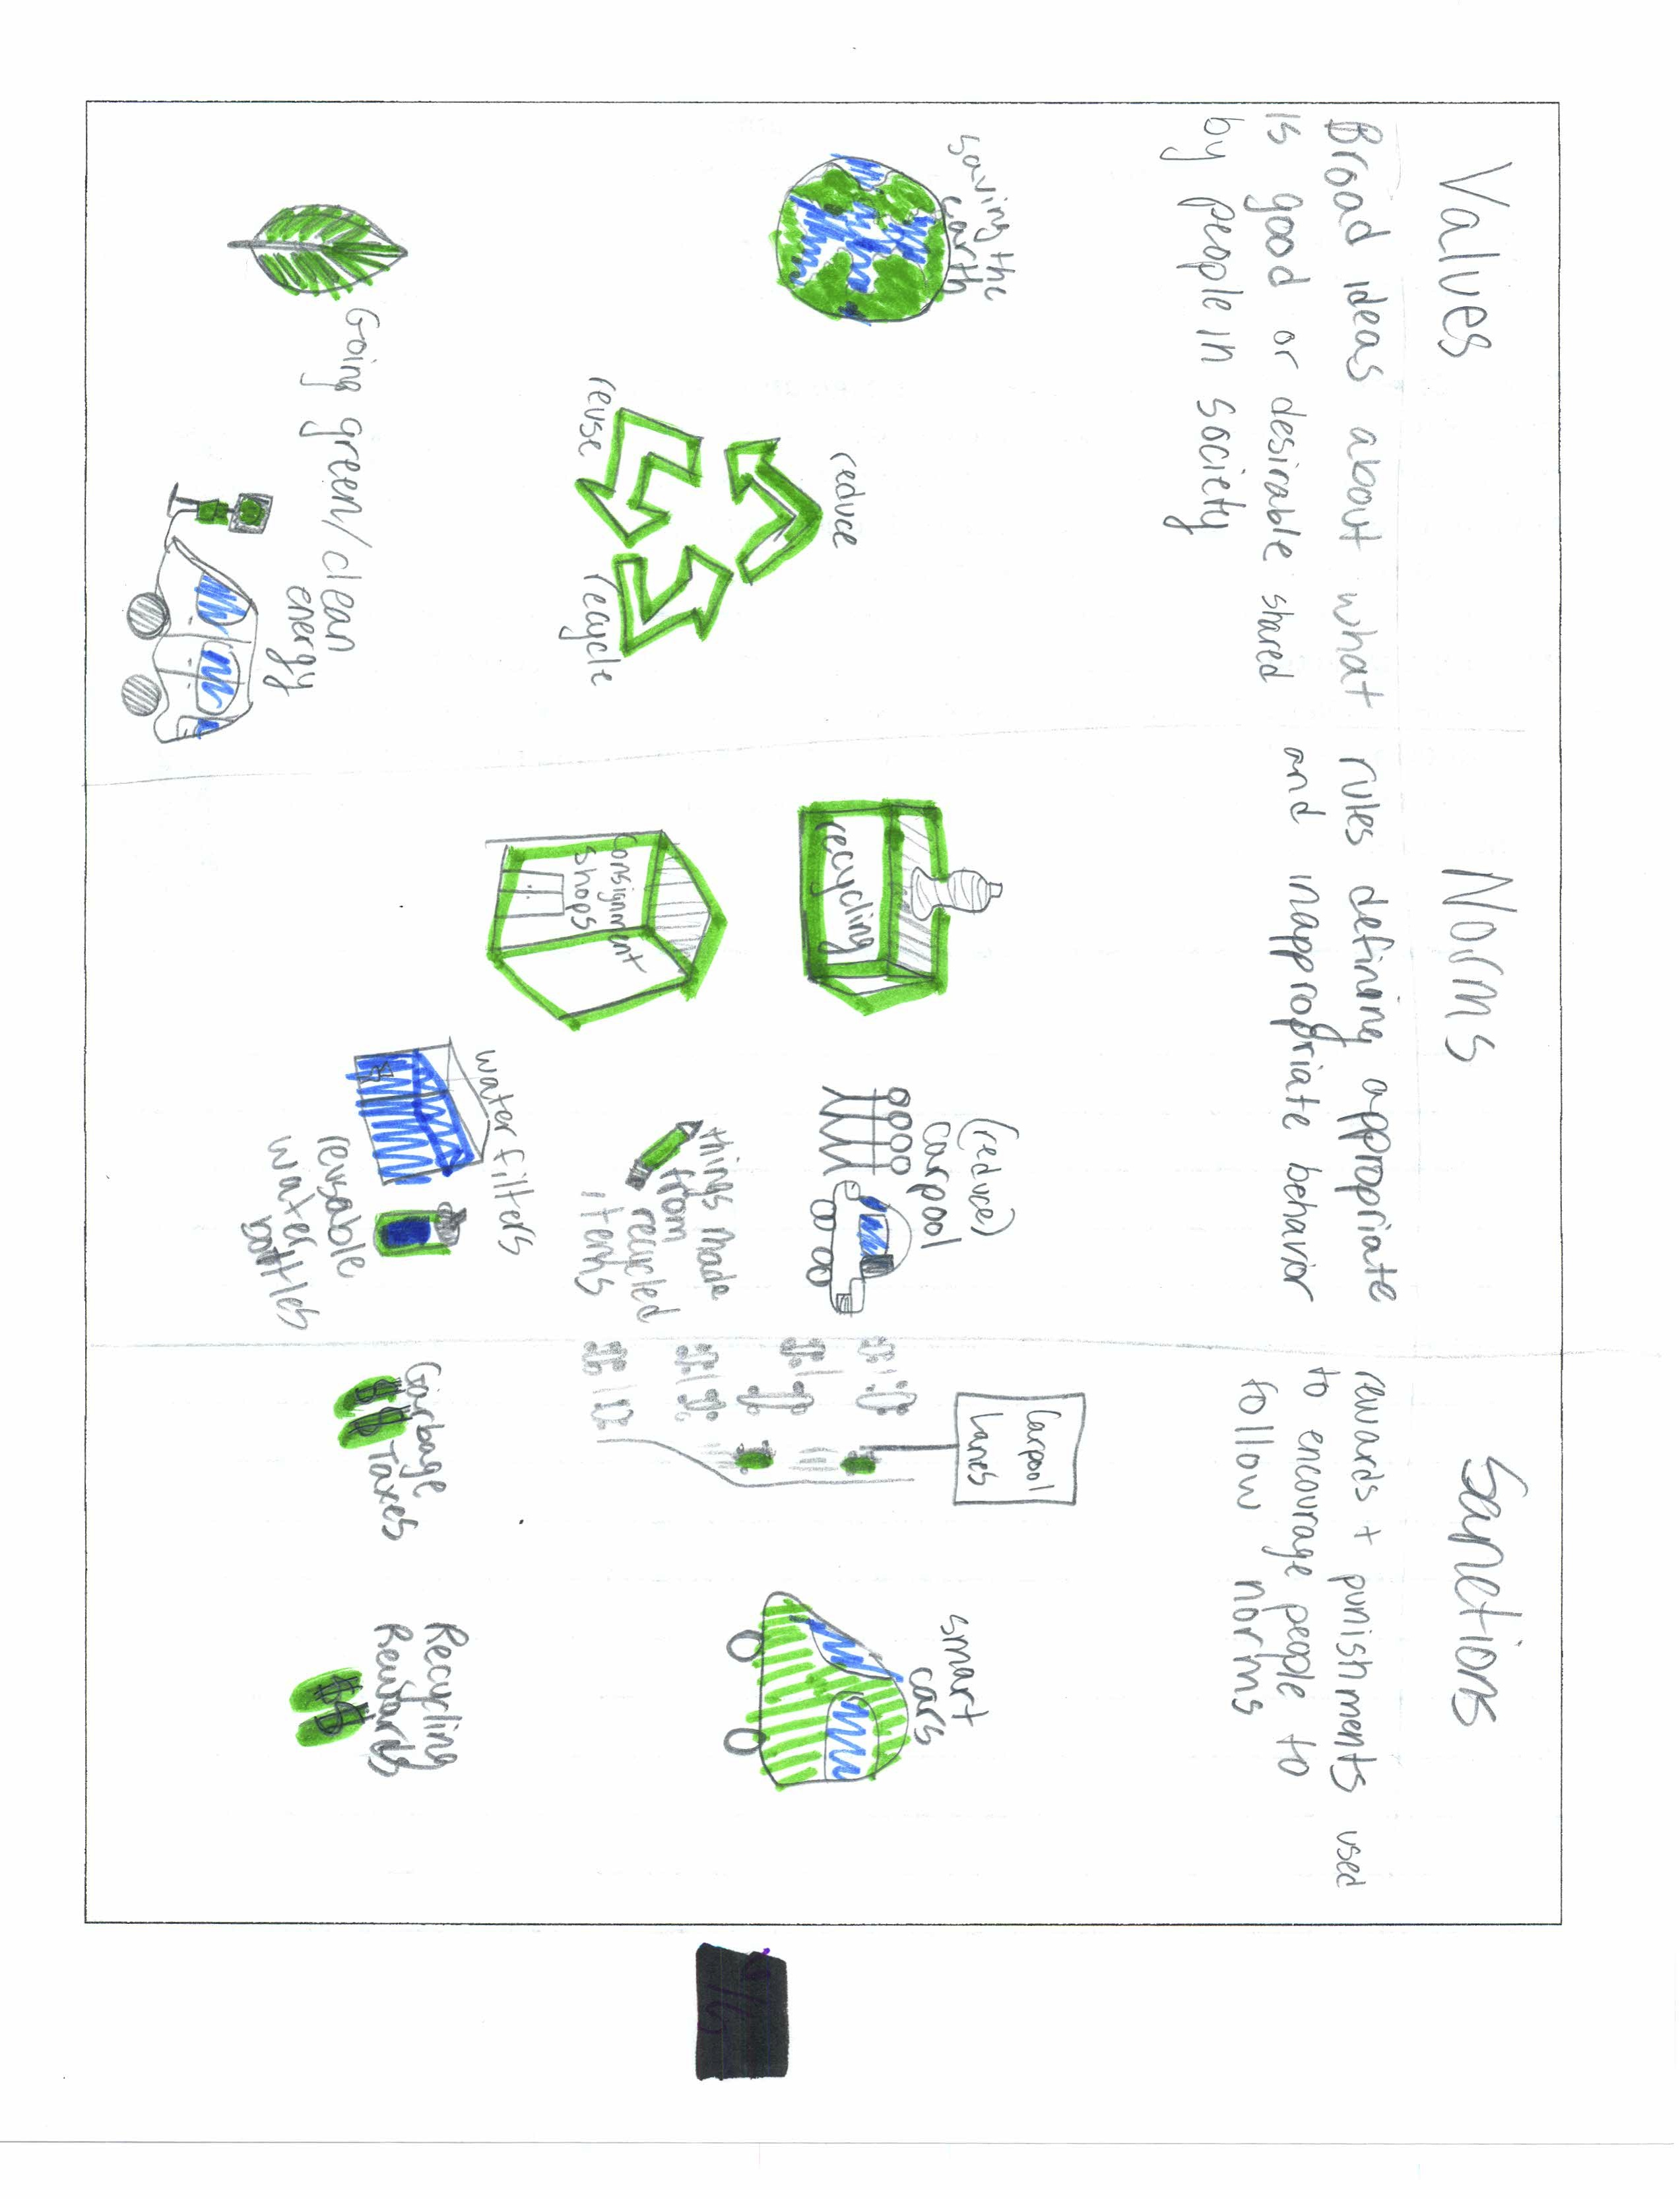 Values
Broad ideas about what
is good or desirable shared
by people in society
saving the
earth
reduce
reuse
recycle
Going green/clean
energy
Norms
rules defining appropriate
and inappropriate behavior
recycling
(reduce)
carpool
consignment
shops
things made
from
recycled
items
water filters
reusable
water
bottles
Sanctions
rewards + punishments used
to encourage people to
follow norms
Carpool
Lanes
smart
cars
Garbage
Taxes
$ $
Recycling
Rewards
$ $